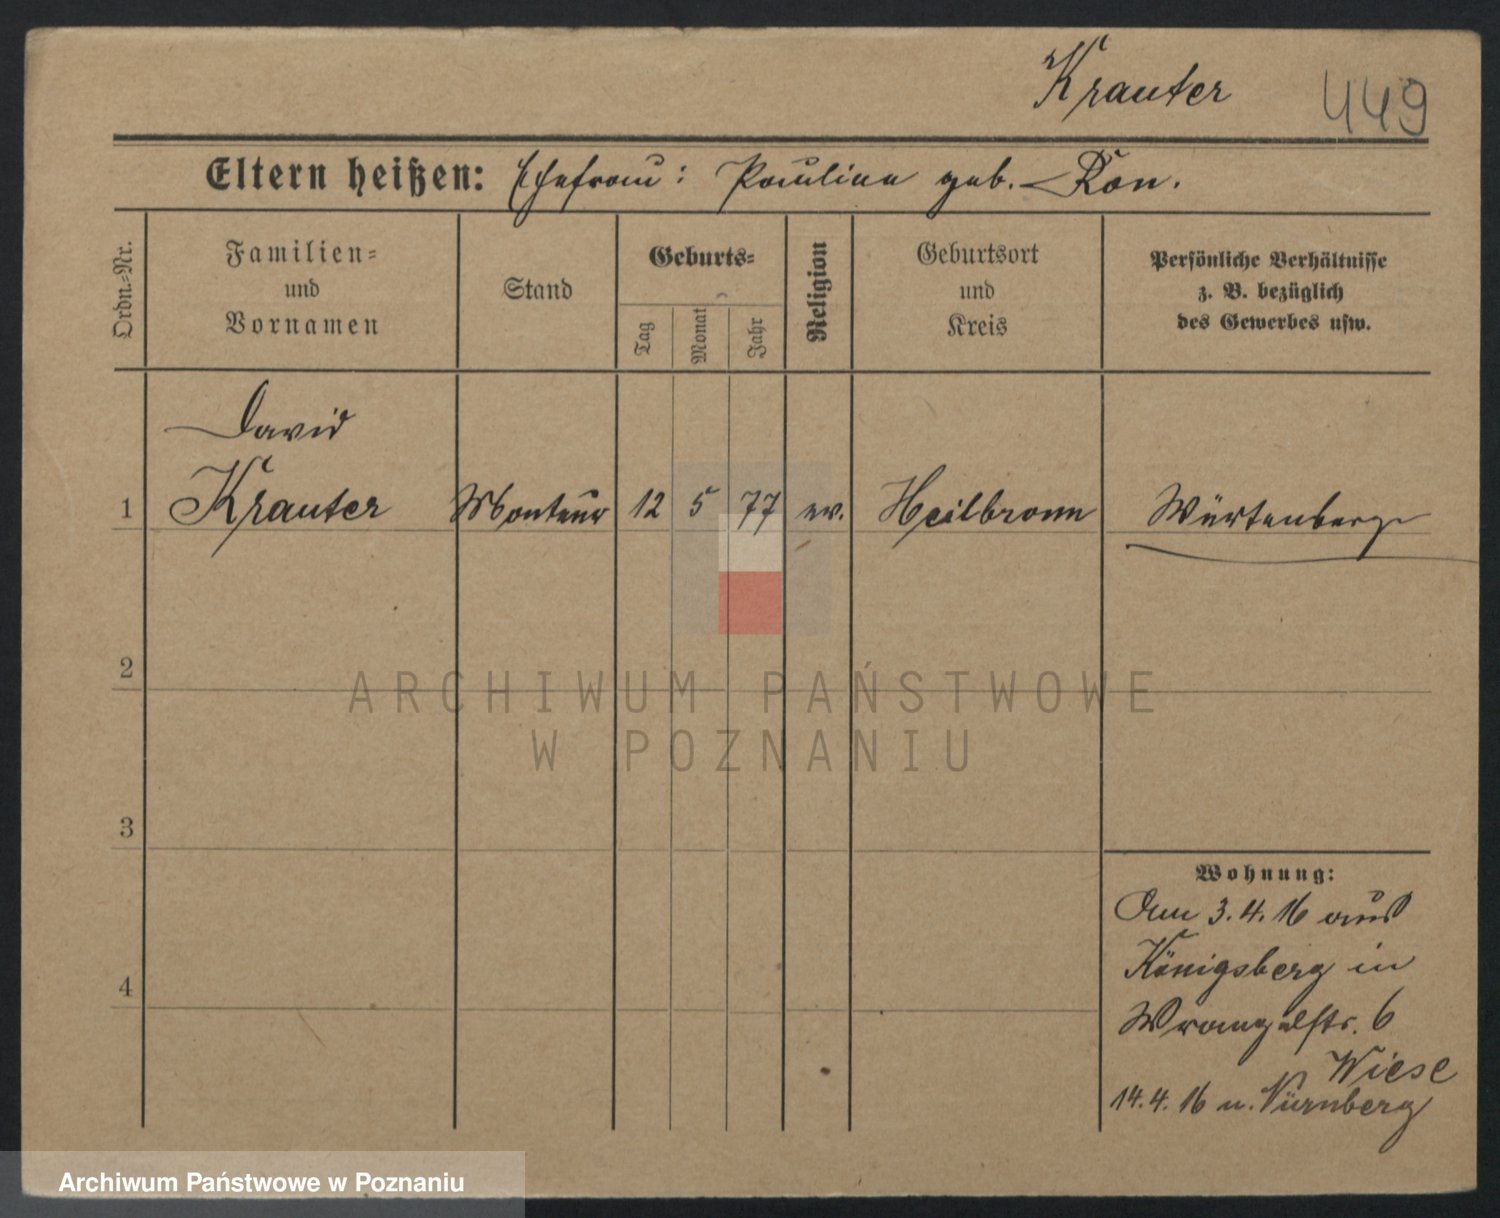 Krauter 449
Eltern heißen: Ehefrau: Pauline geb. Kon.
Ordn.-Nr.
Familien-
und
Vornamen
Stand
Geburts-
Tag
Monat
Jahr
Religion
Geburtsort
und
Kreis
Persönliche Verhältnisse
z. B. bezüglich
des Gewerbes usw.
David
1 Krauter Monteur 12 5 77 ev. Heilbronn Würtenberg
2
ARCHIWUM PAŃSTWOWE
W POZNANIU
3
Wohnung:
Am 3.4.16 aus
Königsberg in
4
Wrangelstr. 6
Wiese
14.4.16 n. Nürnberg
Archiwum Państwowe w Poznaniu